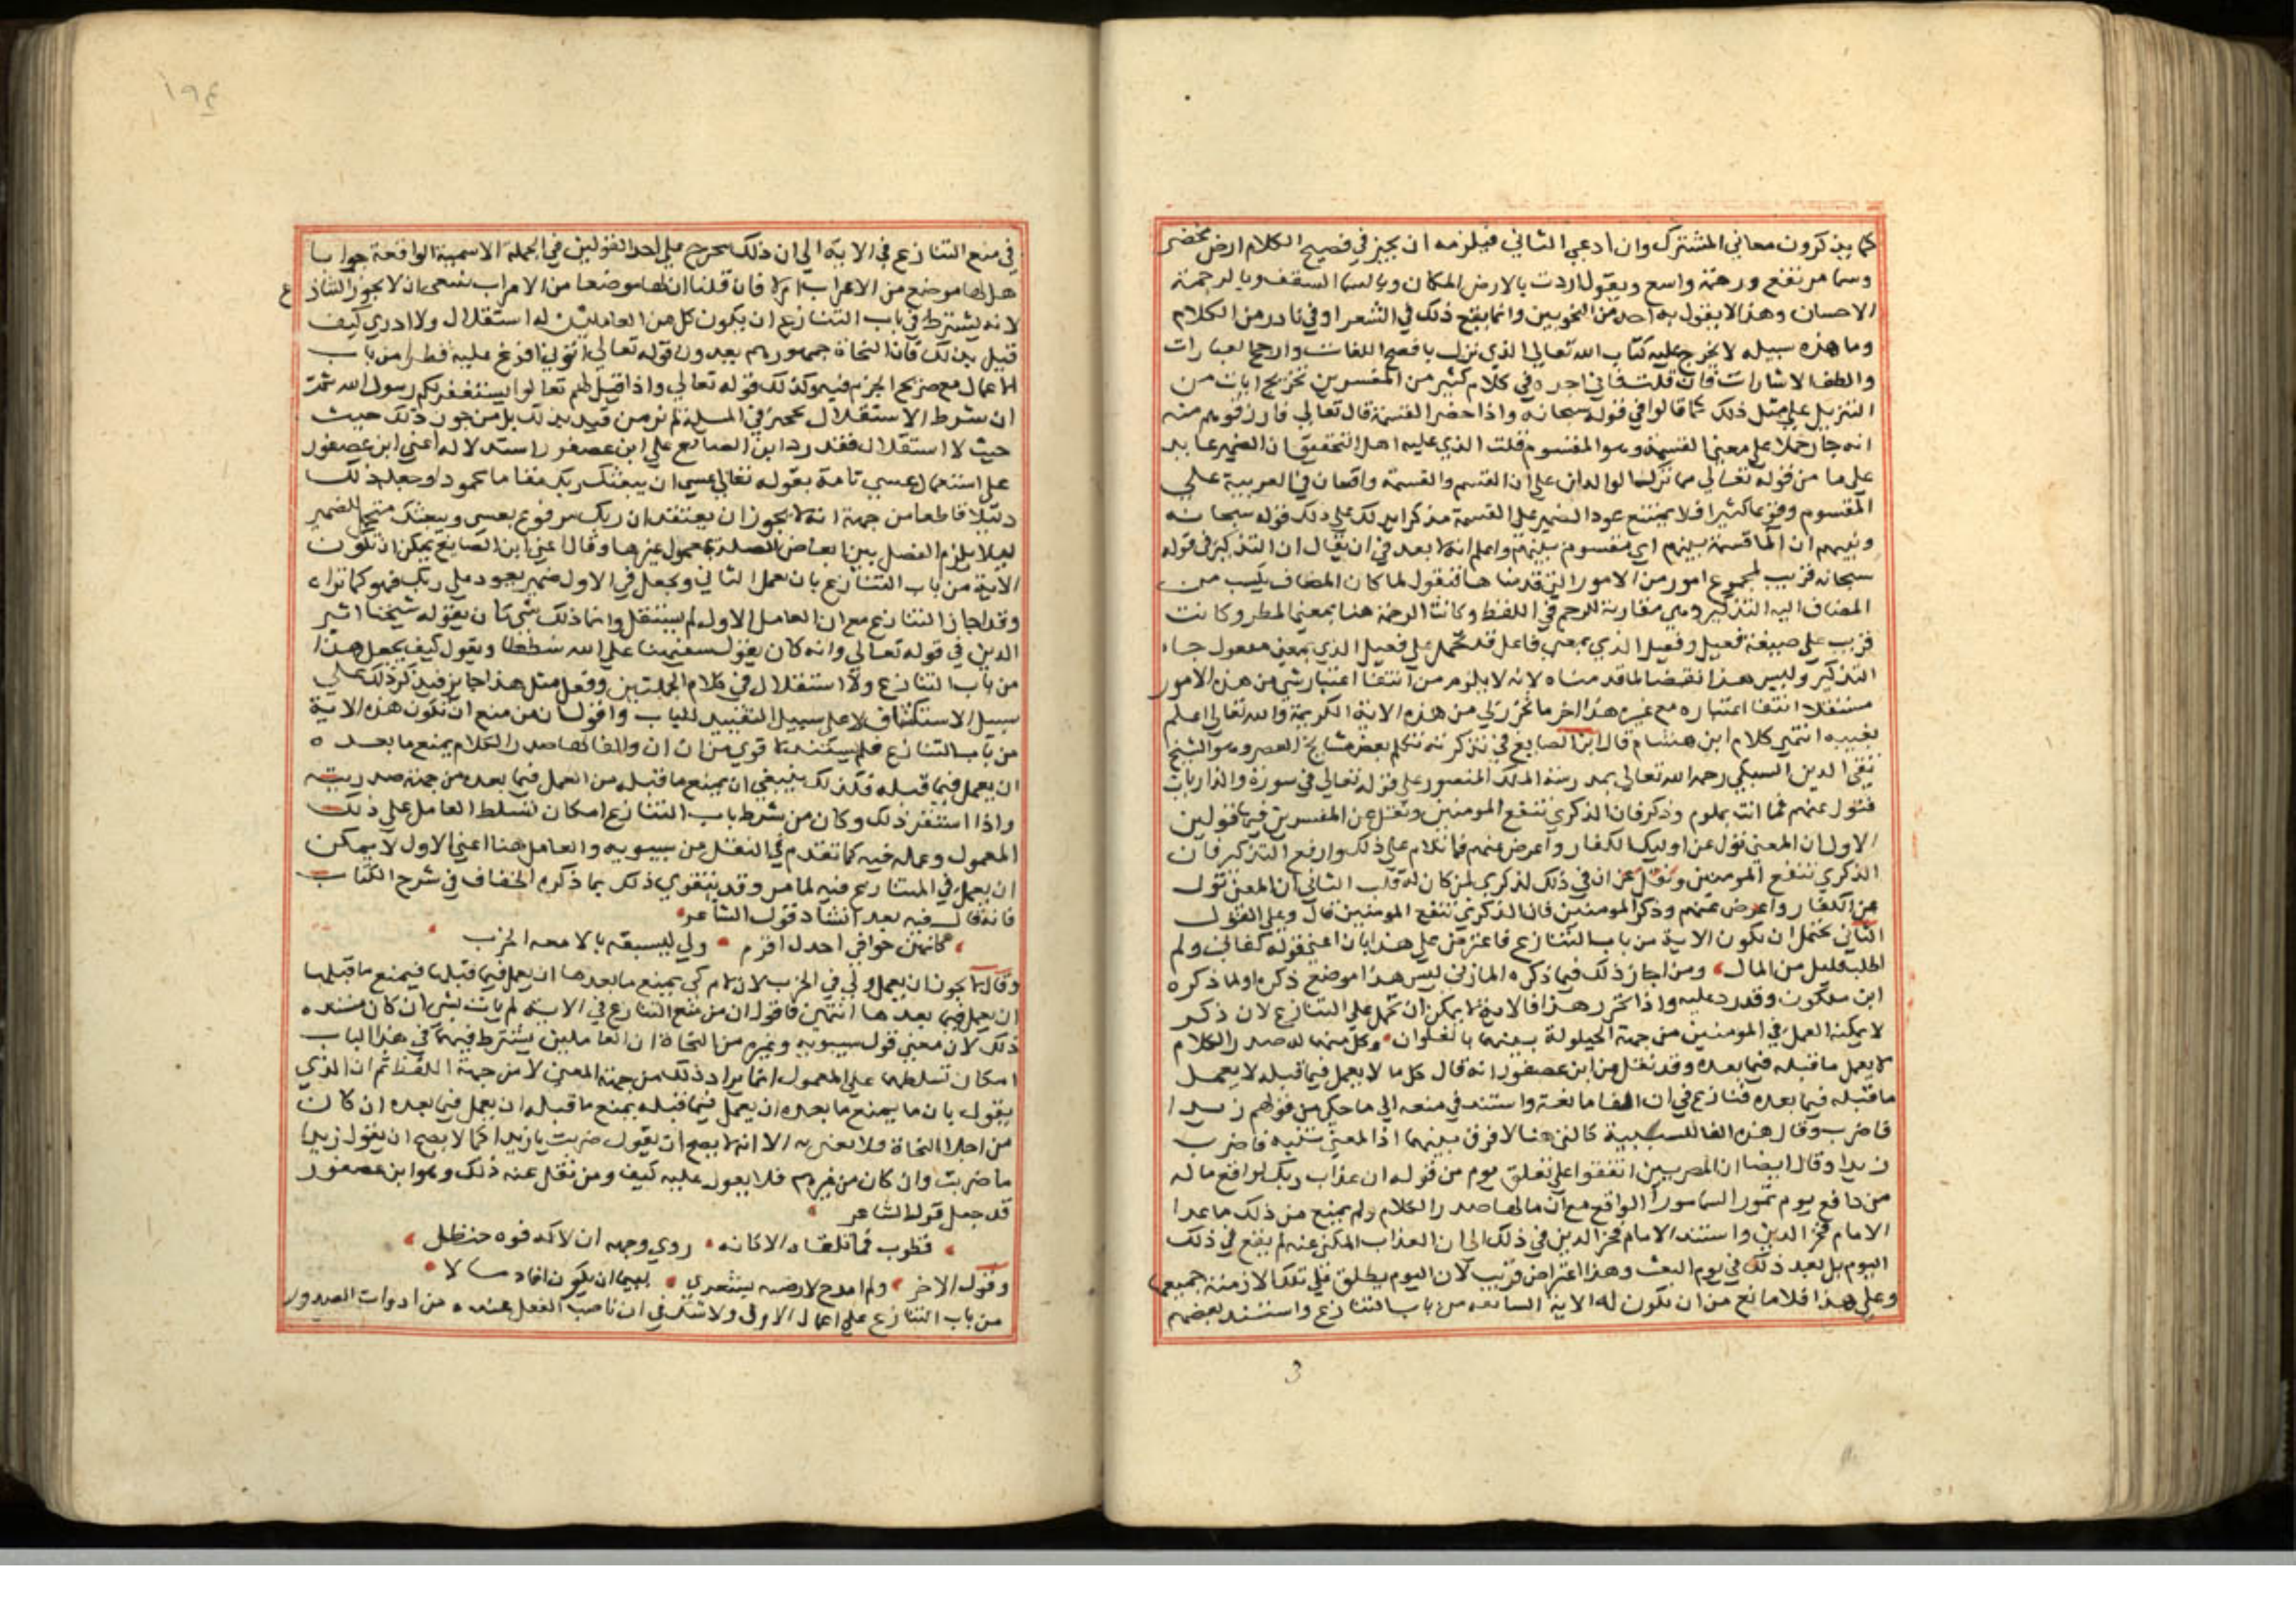 كما يذكرون معاني المشترك وان ادعي الثاني فيلزمه ان يجيز في فصيح الكلام ارض مخضر
وسما مرتفع ورحمة واسع ويقول اردت بالارض المكان وبالسما السقف وبالرحمة
الاحسان وهذا لا يقول به احد من النحويين وانما يقع ذلك في الشعر او في نادر من الكلام
وما هذه سبيله لا يخرج عليه كتاب الله تعالي الذي نزل بافصح اللغات وارجح العبارات
والطف الاشارات فان قلت فاني اجده في كلام كثير من المفسرين تخريج ايات من
التنزيل علي مثل ذلك كما قالوا في قوله سبحانه واذا حضر القسمة قال تعالي فارزقوهم منه
انه جا حملا علي معني القسمة وهو المقسوم قلت الذي عليه اهل التحقيق ان الضمير عايد
علي ما من قوله تعالي مما ترك الوالدان علي ان القسم والقسمة واقعان في العربية علي
المقسوم وقوعا كثيرا فلا يمتنع عود الضمير علي القسمة مذكرا يدلك علي ذلك قوله سبحانه
ونبيهم ان الما قسمة بينهم اي مقسوم بينهم واعلم انه لا بعد في ان يقال ان التذكير في قوله
سبحانه قريب لمجموع امور من الامور التي قدمنا ها فنقول لما كان المضاف يكتسب من
المضاف اليه التذكير وهي مقاربة للرحم في اللفظ وكانت الرحمة هنا بمعني المطر وكانت
قريب علي صيغة فعيل وفعيل الذي بمعني فاعل قد يحمل علي فعيل الذي بمعني مفعول جاء
التذكير وليس هذا نقضا لما قدمناه لانه لا يلزم من انتفا اعتبار شي من هذه الامور
مستقلا انتفا اعتباره مع غيره هذا اخر ما تحرر لي من هذه الاية الكريمة والله تعالي اعلم
بغيبه انتهي كلام ابن هشام قال ابن الصايغ في تذكرته تكلم بعض مشايخ العصر وهو الشيخ
تقي الدين السبكي رحمه الله تعالي بمدرسة الملك المنصور علي قوله تعالي في سورة والذاريات
فتول عنهم فما انت بملوم وذكر فان الذكري تنفع المومنين ونقل عن المفسرين فيها قولين
الاول ان المعني تول عن اوليك الكفار واعرض عنهم فما تلام علي ذلك وارفع التذكير فان
الذكري تنفع المومنين ونقل عن ان في ذلك لذكري لمن كان له قلب الثاني ان المعني تول
عن الكفار واعرض عنهم وذكر المومنين فان الذكري تنفع المومنين قال وعلي القول
الثاني يحتمل ان تكون الاية من باب التنازع فاعترض علي هذا بان اعني قوله كفاني ولم
اطلب قليل من المال ومن اجاز ذلك فيما ذكره المازني ليس هذا موضع ذكره او لما ذكره
ابن ملكون وقد رد عليه واذا تحرر هذا فالاية لا يمكن ان تحمل علي التنازع لان ذكر
لا يمكنه العمل في المومنين من جهة الحيلولة بينهما بالفا وان وكل منهما له صدر الكلام
لا يعمل ما قبله فيما بعده وقد نقل من ابن عصفور انه قال كل ما لا يعمل فيما قبله لا يعمل
ما قبله فيما بعده فنازع في ان الفا مانعة واستند في منعه الي ما حكي من قولهم زيدا
فاضرب وقال هذه الفا للسببية كالتي هنا لا فرق بينهما اذ المعني تنبه فاضرب
زيدا وقال ايضا ان المعربين اتفقوا علي تعلق يوم من قوله ان عذاب ربك لواقع ما له
من دافع يوم تمور السما مورا الواقع مع ان ما لها صدر الكلام ولم يمنع من ذلك ما عدا
الامام فخر الدين واستند الامام فخر الدين في ذلك الي ان العذاب المكني عنه لم يقع في ذلك
اليوم بل بعد ذلك في يوم البعث وهذا اعتراض قريب لان اليوم يطلق علي تلك الازمنة جميعها
وعلي هذا فلا مانع من ان تكون له الاية السابقه من باب التنازع واستند بعضهم
في منع التنازع في الاية الي ان ذلك يخرج علي احد القولين في الجملة الاسمية الواقعة جوابا
هل لها موضع من الاعراب ام لا فان قلنا ان لها موضعا من الاعراب ينبغي ان لا يجوز التنازع
لانه يشترط في باب التنازع ان يكون كل من العاملين له استقلال ولا ادري كيف
قيل بذلك فان النحاة جمهورهم يعدون قوله تعالي اتوني افرغ عليه قطرا من باب
الاعمال مع صريح الجزم فيه وكذلك قوله تعالي واذا قيل لهم تعالوا يستغفر لكم رسول الله ثمت
ان شرط الاستقلال في المسيلة لم نر من قيد بذلك بل من جوز ذلك حيث
حيث لا استقلال فقد رد ابن الصايع علي ابن عصفور استدلاله اعني ابن عصفور
علي استعمال عسي تامة بقوله تعالي عسي ان يبعثك ربك مقاما محمودا وجعل ذلك
دليلا قاطعا من جهة انه لا يجوز ان يعتقد ان ربك مرفوع بعسي ويبعثك متحمل الضمير
ليلا يلزم الفصل بين ابعاض الصلة بمعمول غيرها وقال اعني ابن الصايع يمكن ان تكون
الاية من باب التنازع بان يعمل الثاني ويجعل في الاول ضمير يعود علي ربك فهو كما تراه
وقد اجاز التنازع مع ان العامل الاول لم يستقل وانما ذلك شي كان يقوله شيخنا اثير
الدين في قوله تعالي وانه كان يقول سفيهنا علي الله شططا ويقول كيف يجعل هذا
من باب التنازع ولا استقلال في كلام الجملتين وفعل مثل هذا جايز فيذكر ذلك علي
سبيل الاستكشاف لا علي سبيل التقييد للباب واقول ان من منع ان تكون هذه الاية
من باب التنازع فلم يستند لا قوي من ان ان والفا لها صدر الكلام يمنع ما بعده
ان يعمل فيما قبله فكذلك ينبغي ان يمنع ما قبله من العمل فيما بعده من جهة صدريته
واذا استقر ذلك وكان من شرط باب التنازع امكان تسلط العامل علي ذلك
المعمول وعمله فيه كما تقدم في النقل من سيبويه والعامل هنا اعني الاول لا يمكن
ان يعمل في المتنازع فيه لما مر وقد يتقوي ذلك بما ذكره الخفاف في شرح الكتاب
فانه قال فيه بعد انشاد قول الشاعر
كانهن خوافي اجدل قرم ولي ليسبقه بالامعه الخرب
وقال لا يجوز ان يعمل ولي في الخرب لان لام كي يمنع ما بعدها ان يعمل فيما قبلها فيمنع ما قبلها
ان يعمل فيما بعدها انتهي فاقول ان من منع التنازع في الاية لم يات بشي ان كان مستنده
ذلك لان معني قول سيبويه وغيره من النحاة ان العاملين يشترط فيهما في هذا الباب
امكان تسلطهما علي المعمول انما يراد ذلك من جهة المعني لا من جهة اللفظ ثم ان الذي
يقول بان ما يمنع ما بعده ان يعمل فيما قبله يمنع ما قبله ان يعمل فيما بعده ان كان
من اجلا النحاة فلا يعني به الا انه لا يصح ان يقول ضربت يا زيدا كما لا يصح ان يقول زيدا
ما ضربت وان كان من غيرهم فلا يعول عليه كيف ومن نقل عنه ذلك وهو ابن عصفور
قد جعل قول الشاعر
قطوب فما تلقاه الا كانه روي وجهه ان لاكه فوه حنظل
وقول الاخر ولم امدح لارضيه بشعري لييما ان يكون افاد مالا
من باب التنازع علي اعمال الاول ولا شك في ان ناصب الفعل عنده من ادوات الصدور